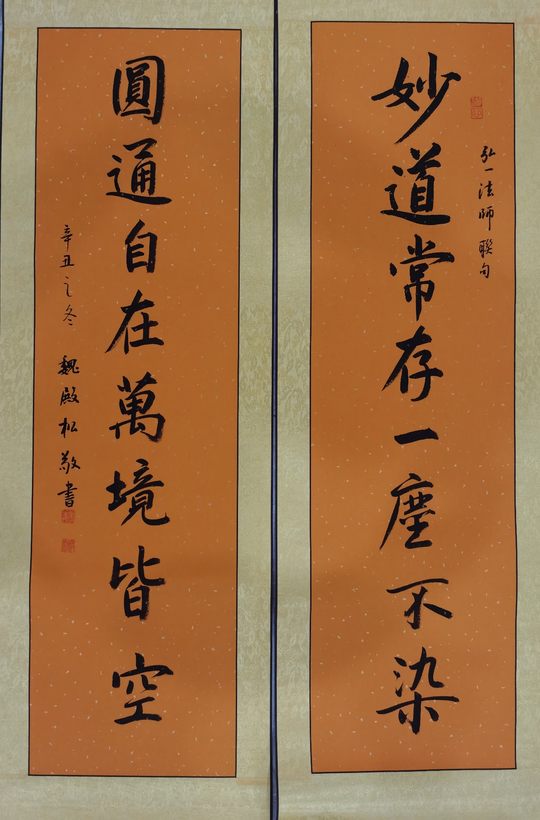 弘一法師聯句
妙道常存一塵不染
圓通自在萬境皆空
辛丑之冬 魏殿松敬書